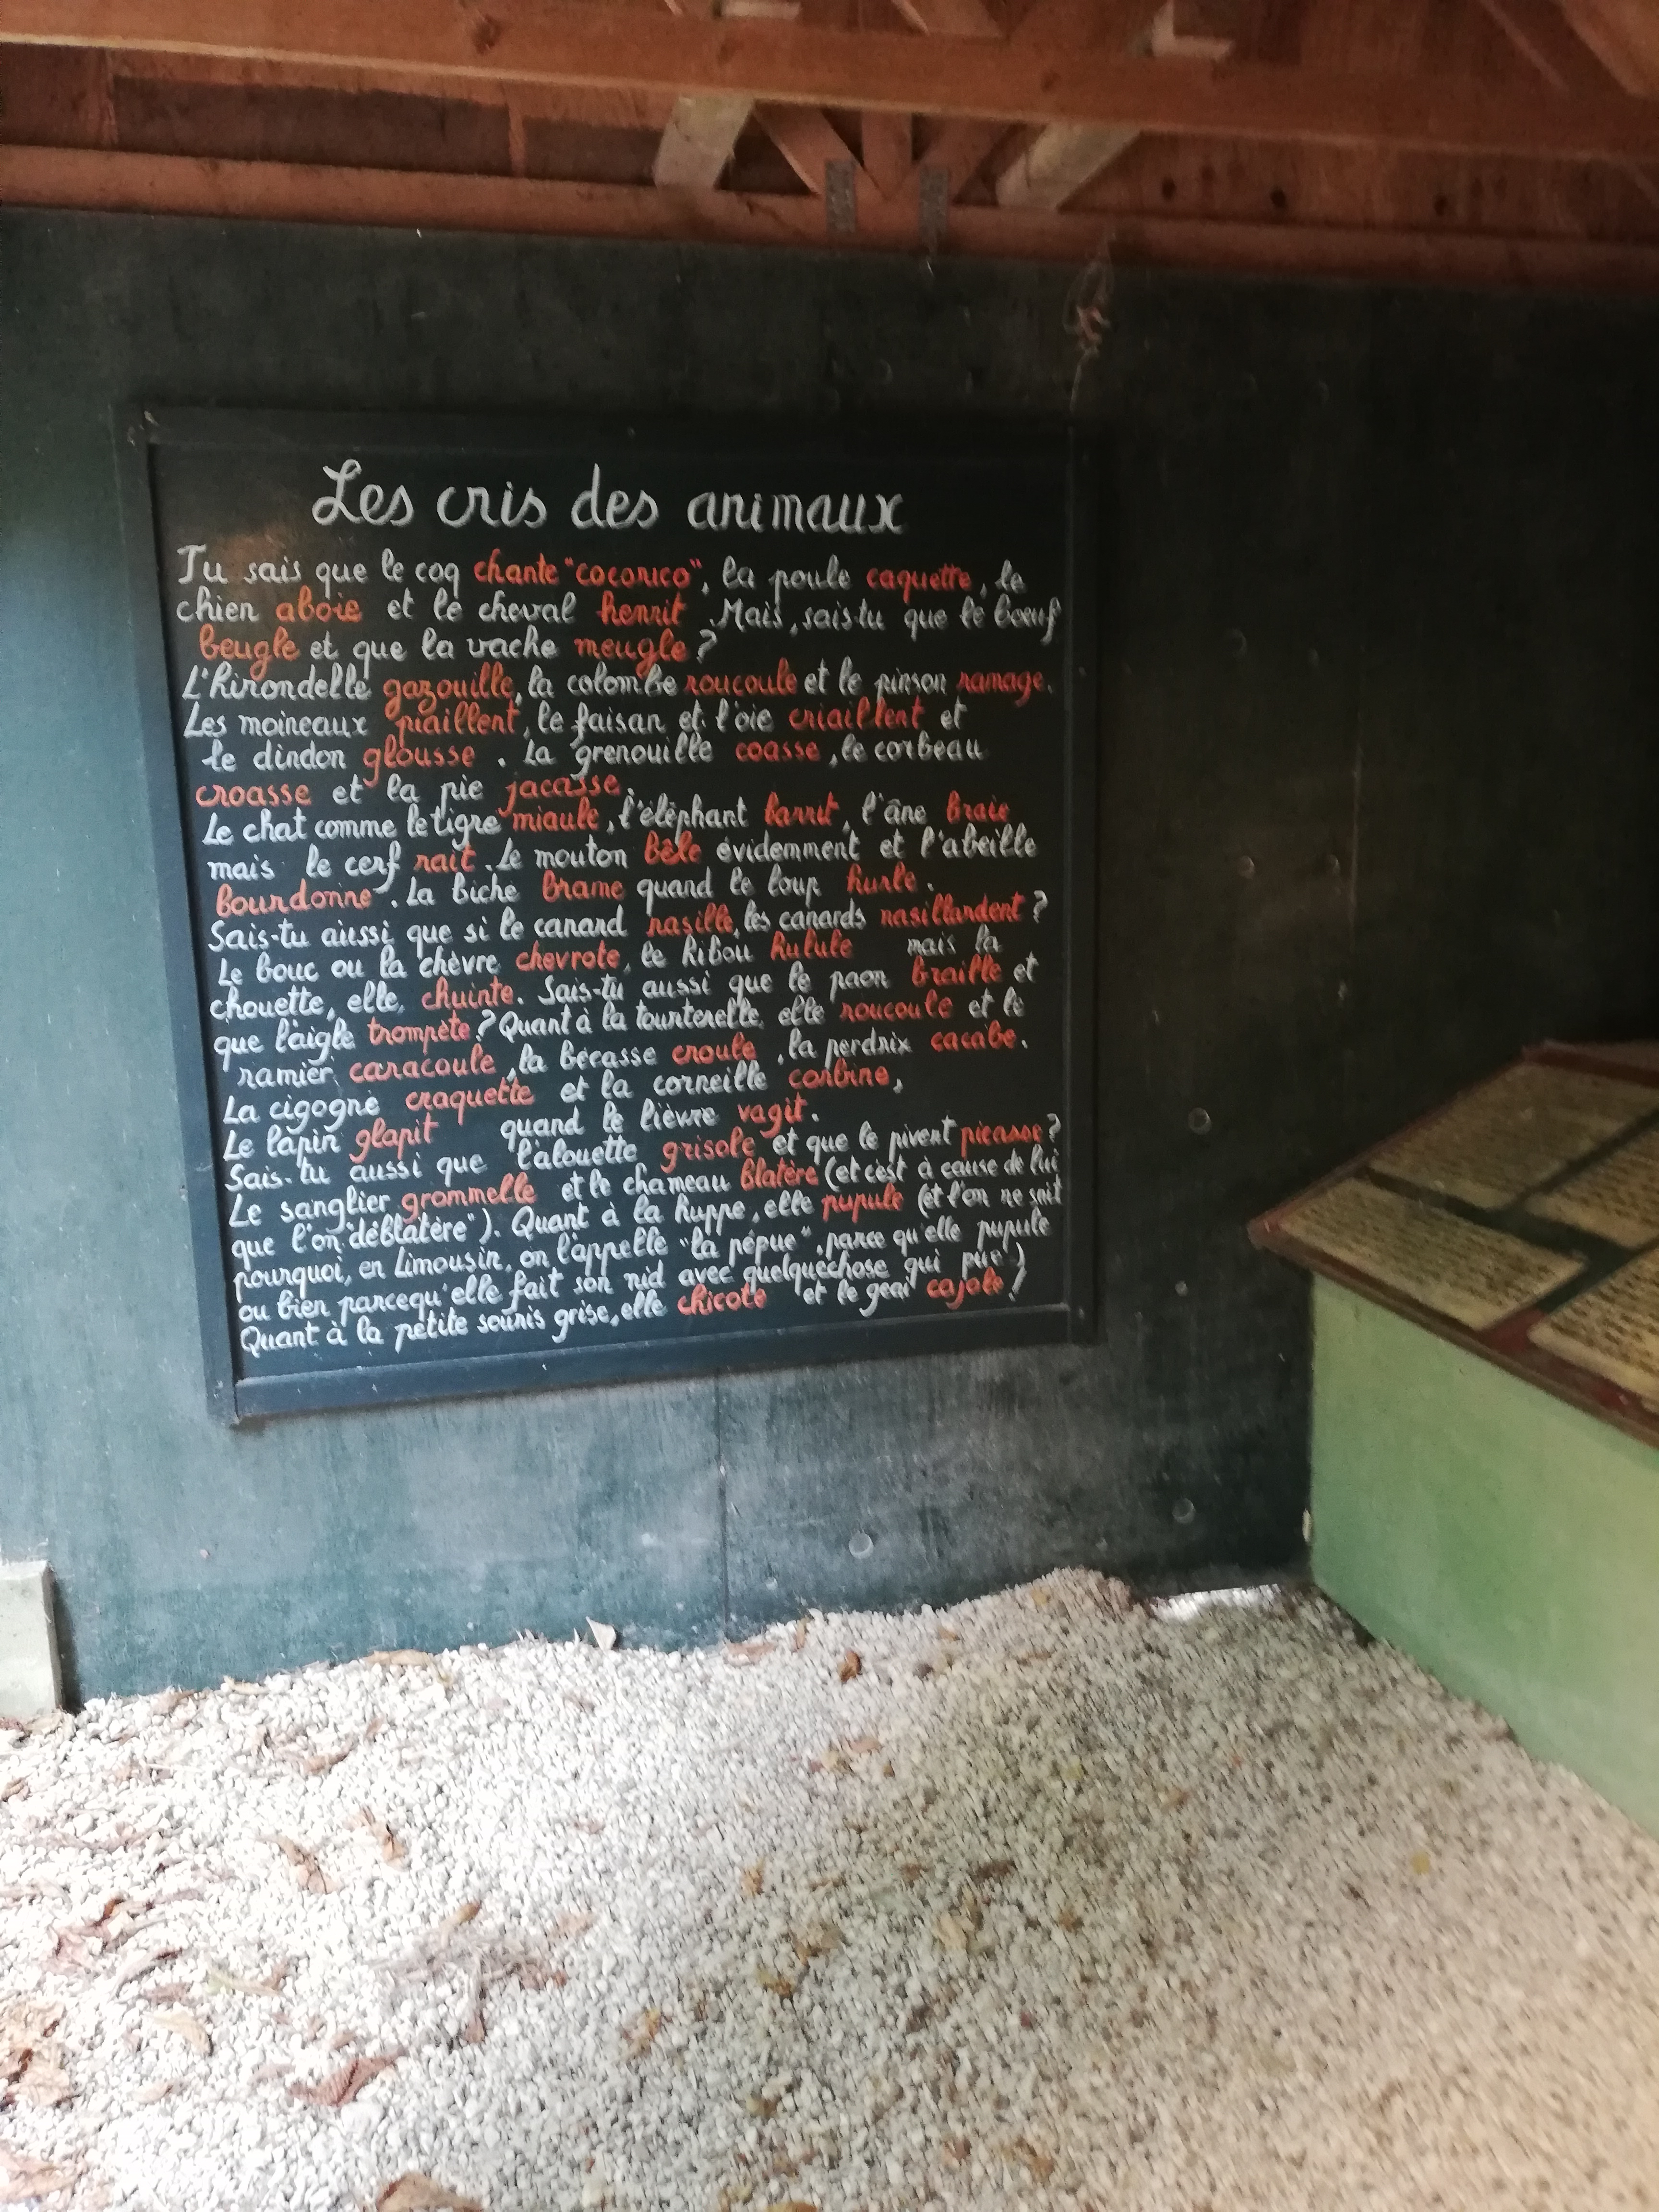 Les cris des animaux
Tu sais que le coq chante "cocorico", la poule caquette, le
chien aboie et le cheval hennit. Mais, sais-tu que le bœuf
beugle et que la vache meugle ?
L'hirondelle gazouille, la colombe roucoule et le pinson ramage.
Les moineaux piaillent, le faisan et l'oie criaillent et
le dindon glousse. La grenouille coasse, le corbeau
croasse et la pie jacasse.
Le chat comme le tigre miaule, l'éléphant barrit, l'âne braie
mais le cerf rait. Le mouton bêle évidemment et l'abeille
bourdonne. La biche brame quand le loup hurle.
Sais-tu aussi que si le canard nasille, les canards nasillardent ?
Le bouc ou la chèvre chevrote, le hibou hulule mais la
chouette, elle, chuinte. Sais-tu aussi que le paon braille et
que l'aigle trompète ? Quant à la tourterelle, elle roucoule et le
ramier caracoule, la bécasse croule, la perdrix cacabe.
La cigogne craquette et la corneille corbine,
Le lapin glapit quand le lièvre vagit.
Sais-tu aussi que l'alouette grisole et que le pivert picasse ?
Le sanglier grommelle et le chameau blatère (et c'est à cause de lui
que l'on "déblatère"). Quant à la huppe, elle pupule (et l'on ne sait
pourquoi, en Limousin, on l'appelle "la pépue", parce qu'elle pupule
ou bien parcequ'elle fait son nid avec quelquechose qui pue !)
Quant à la petite souris grise, elle chicote et le geai cajole !